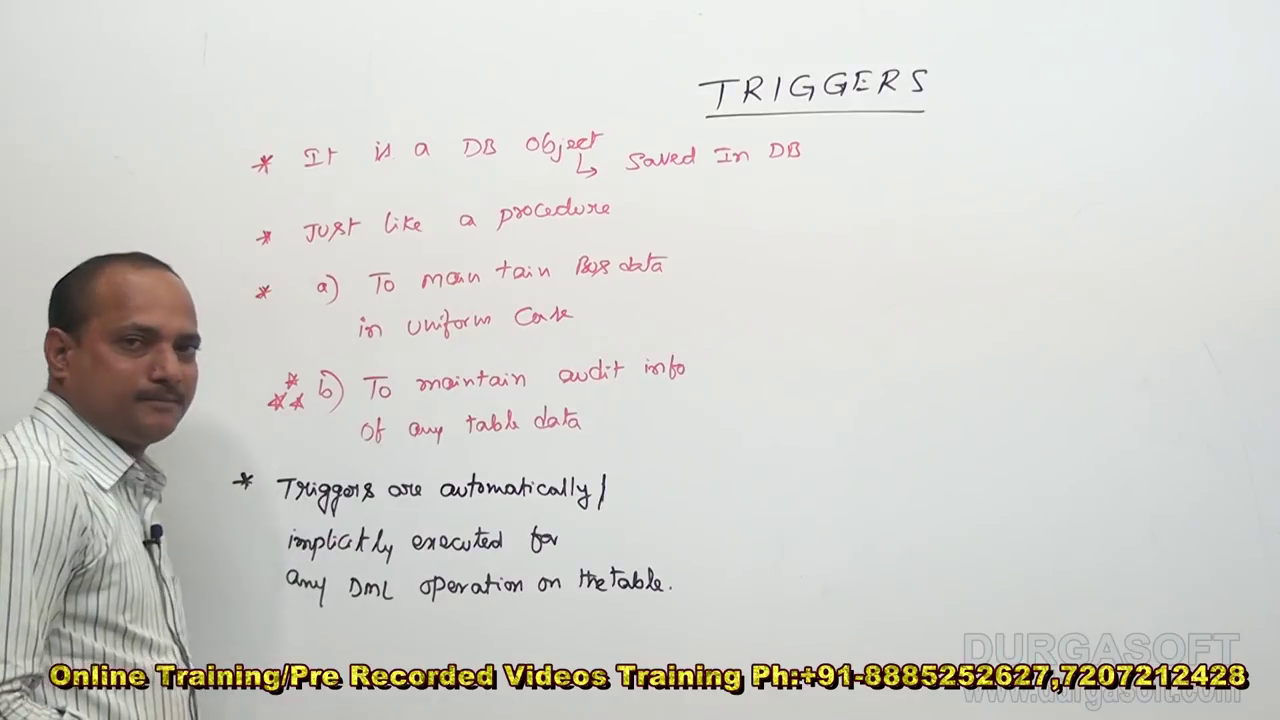 TRIGGERS
* It is a DB Object
↳ Saved In DB
* Just like a procedure
* a) To maintain Bus data
in uniform Case
b) To maintain audit info
of any table data
* Triggers are automatically/
implicitly executed for
any DML operation on the table.
DURGASOFT
www.durgasoft.com
Online Training/Pre Recorded Videos Training Ph:+91-8885252627,7207212428